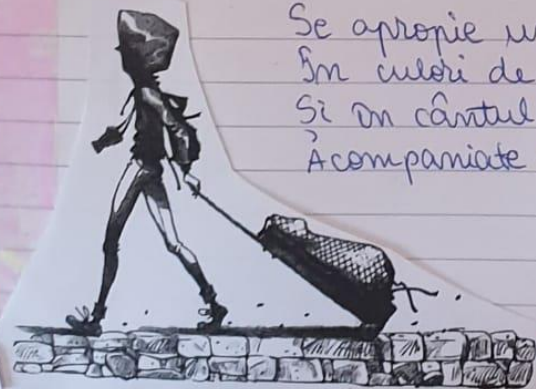 Se apropie
În culori de
Și în cântul
Acompaniate